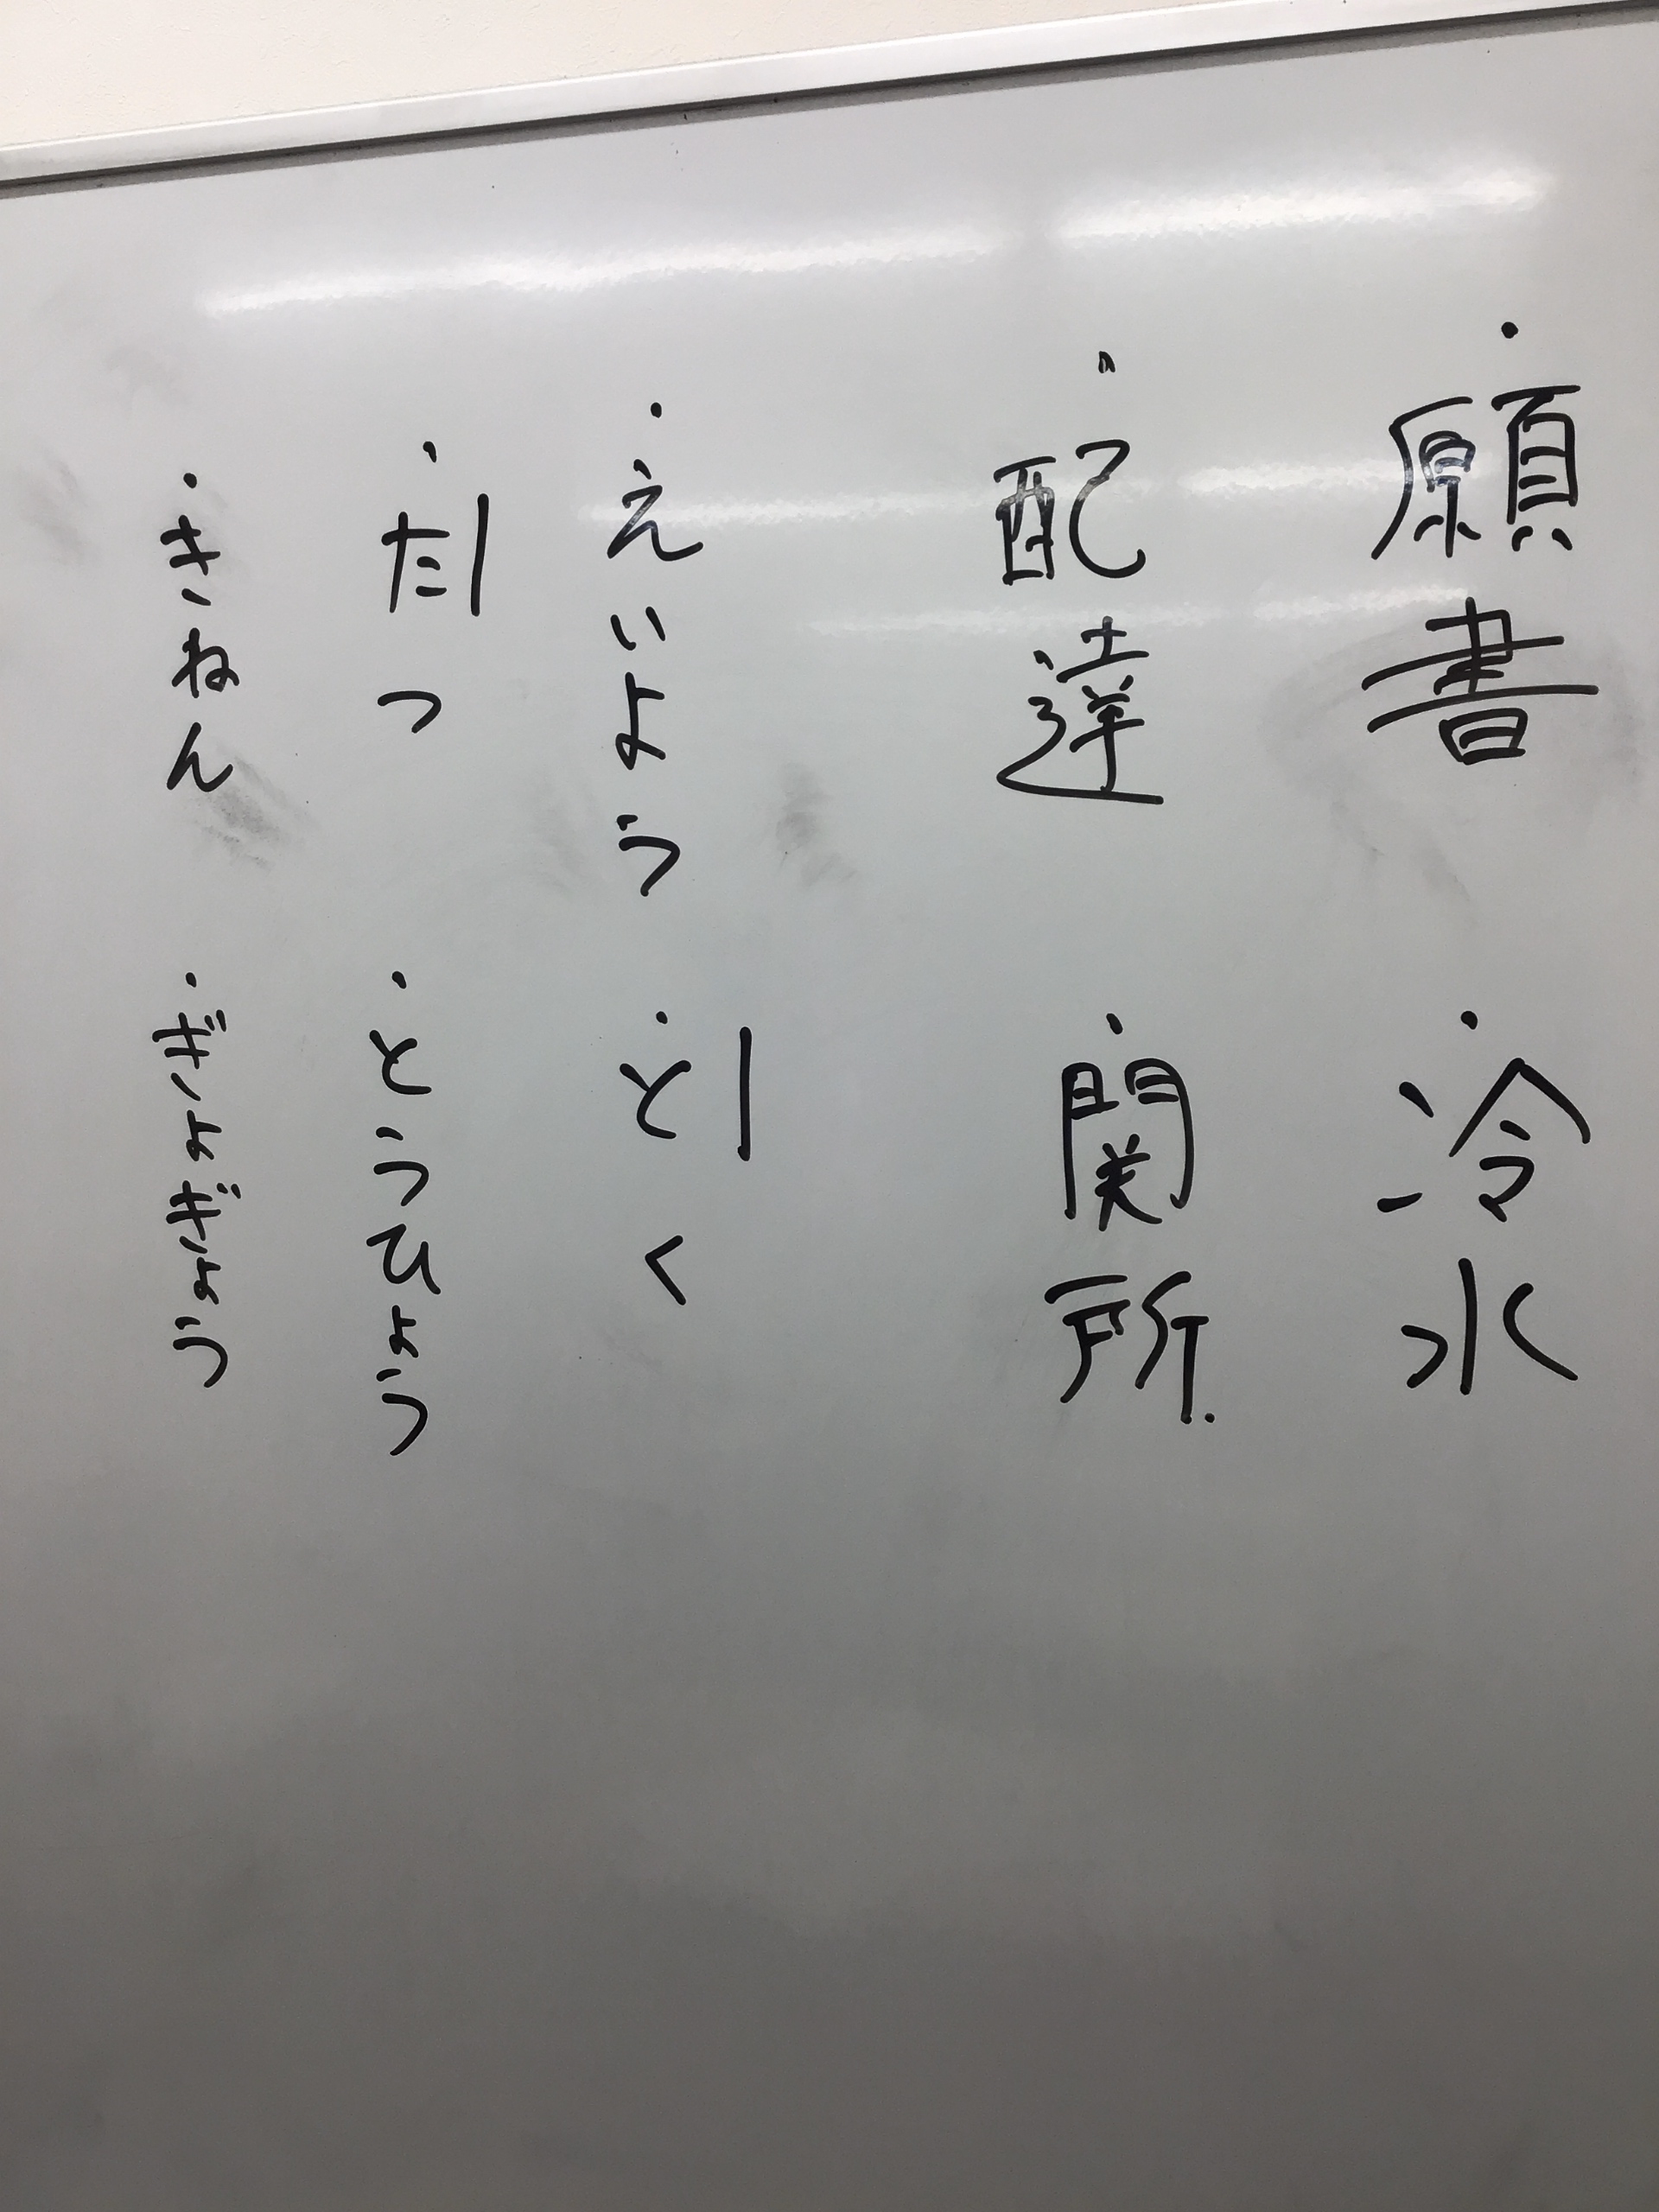 ・願書
・冷水
・配達
・関所
・えいよう
・とく
・たつ
・とうひょう
・きねん
・ぎょぎょう